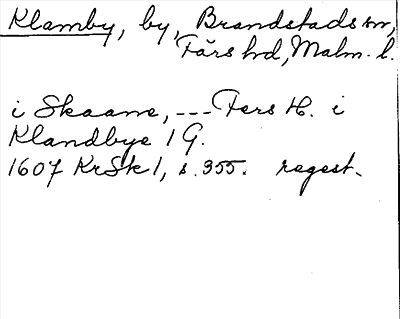 Klamby, by, Brandstads sn,
Färs hd, Malm. l.
i Skaane, --- Fers H. i
Klandbye 1 G.
1607 KrSk 1, s. 355. regest.